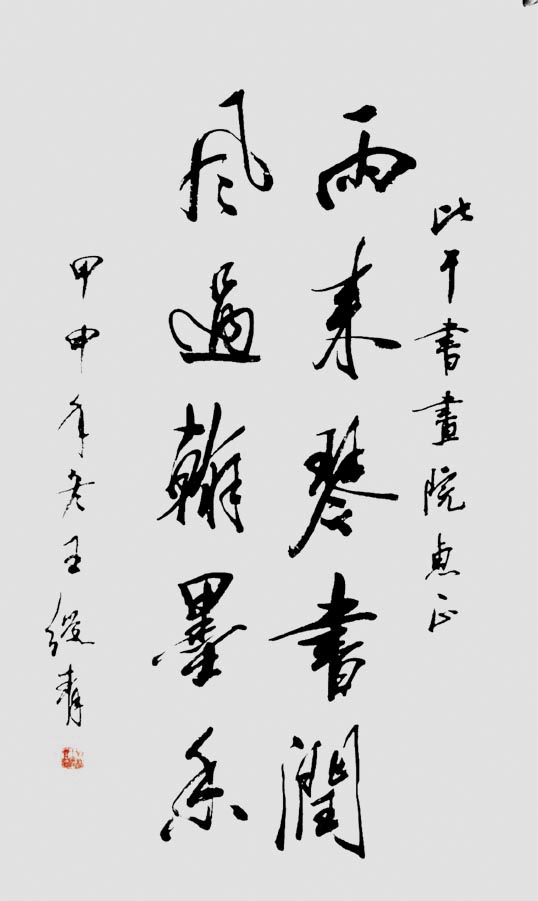 比干書畫院惠正
雨来琴書潤
風過翰墨香
甲申年冬王緩青